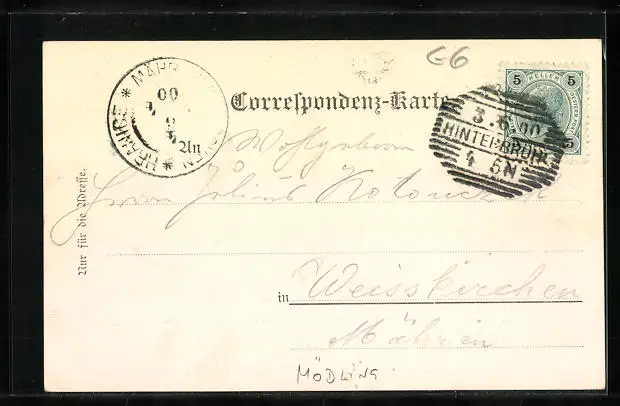 G6
5 HELLER 5
5
MÄHR
HRANICE
00
3.6.00
HINTERBRÜHL
4 5N
Correspondenz-Karte
An
Wohlgeboren
Herrn Julius
Nur für die Adresse.
in Weisskirchen
Mähren
MÖDLING